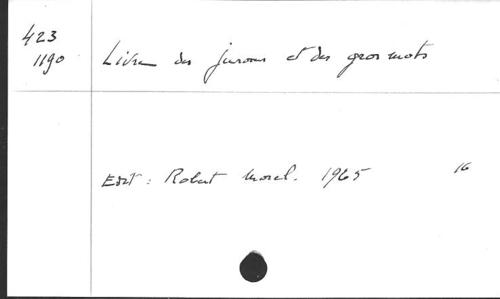 423
1190
Livre des jurons et des gros mots
Edit : Robert Morel. 1965
16